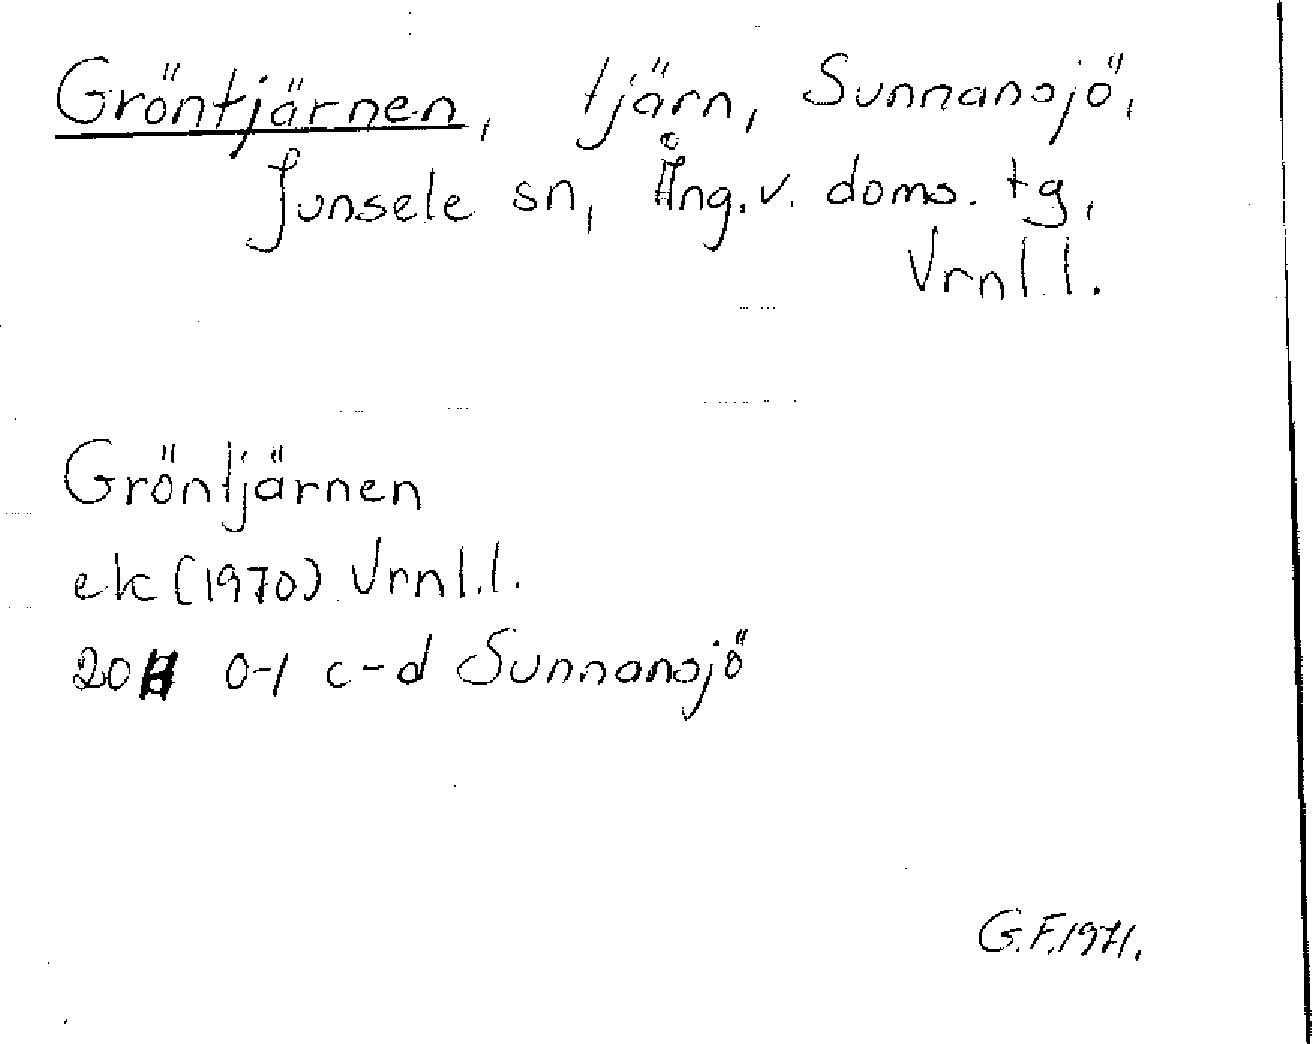 Gröntjärnen, tjärn, Sunnansjö,
Junsele sn, Ång.v. doms. tg,
Vrnl.l.
Gröntjärnen
ek (1970) Vrnl.l.
20H 0-1 c-d Sunnansjö
G.F.1971.